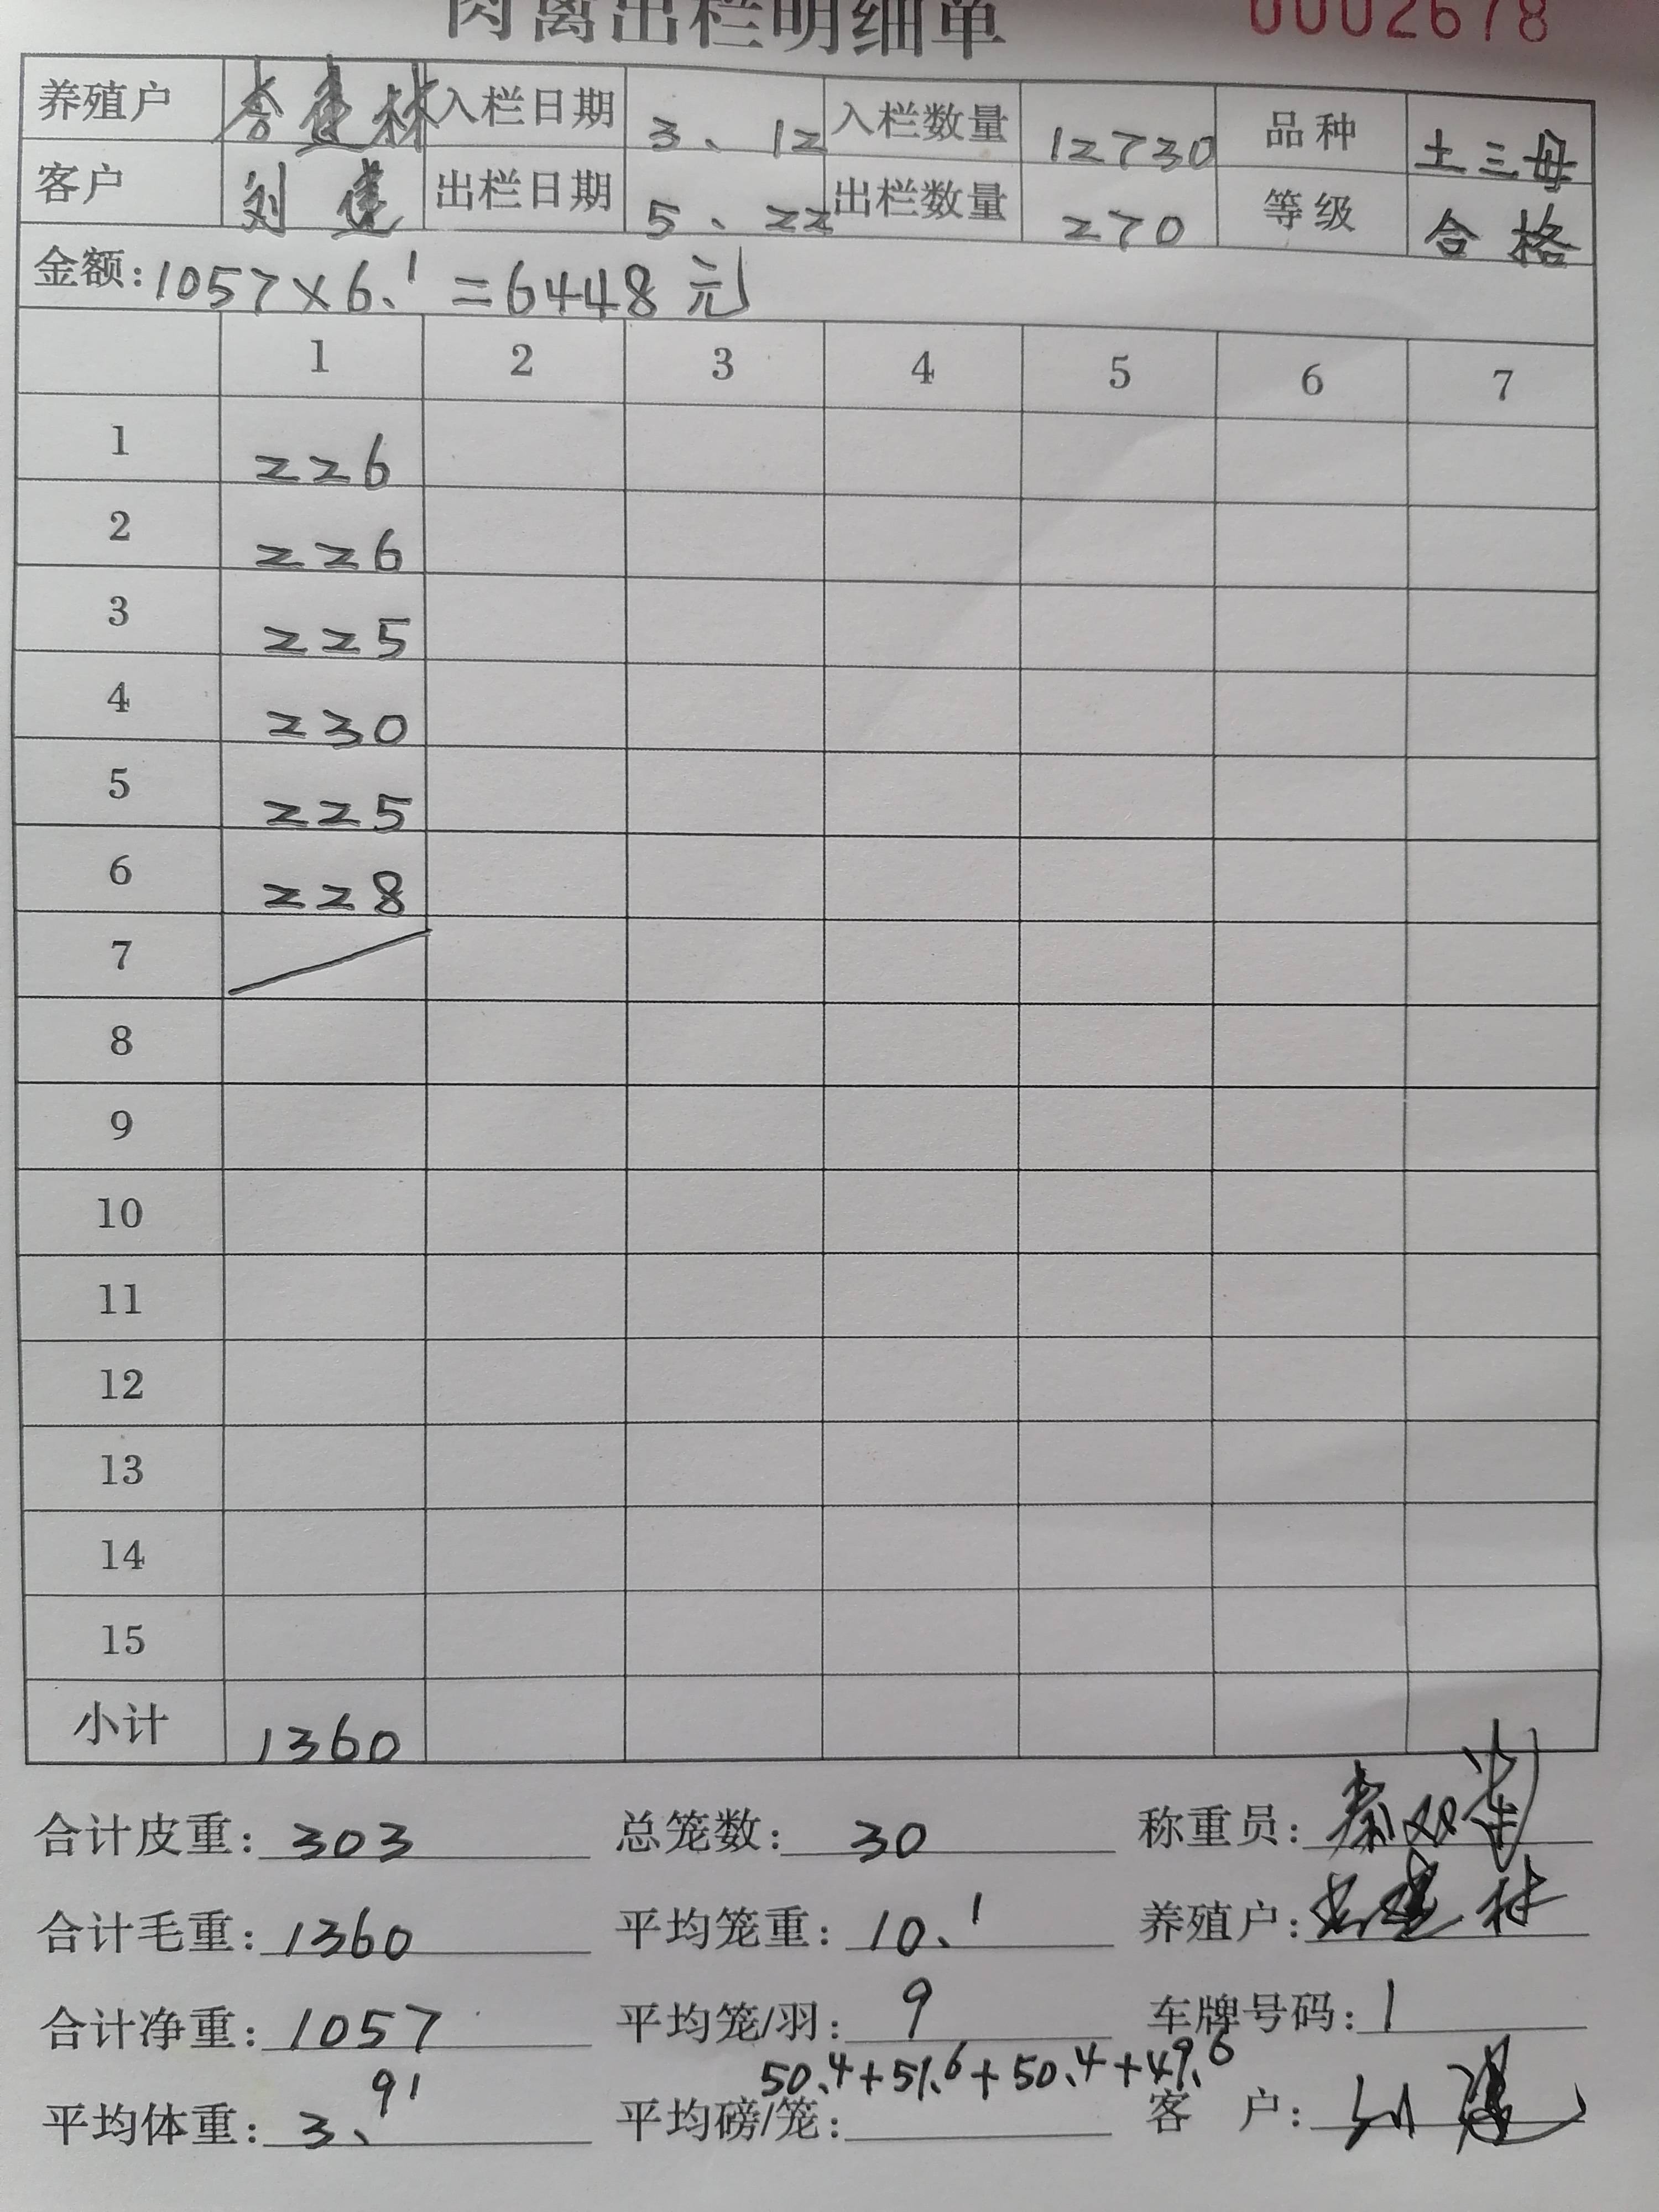 肉禽出栏明细单 0002678
养殖户 李建林 入栏日期 3、12 入栏数量 12730 品种 土三母
客户 刘建 出栏日期 5、22 出栏数量 270 等级 合格
金额:1057×6.1=6448元
1 2 3 4 5 6 7
1 226
2 226
3 225
4 230
5 225
6 228
7
8
9
10
11
12
13
14
15
小计 1360
合计皮重:303 总笼数:30 称重员:
合计毛重:1360 平均笼重:10.1 养殖户:李建林
合计净重:1057 平均笼/羽:9 车牌号码:1
50.4+51.6+50.4+49.6
平均体重:3.91 平均磅/笼: 客户:刘建